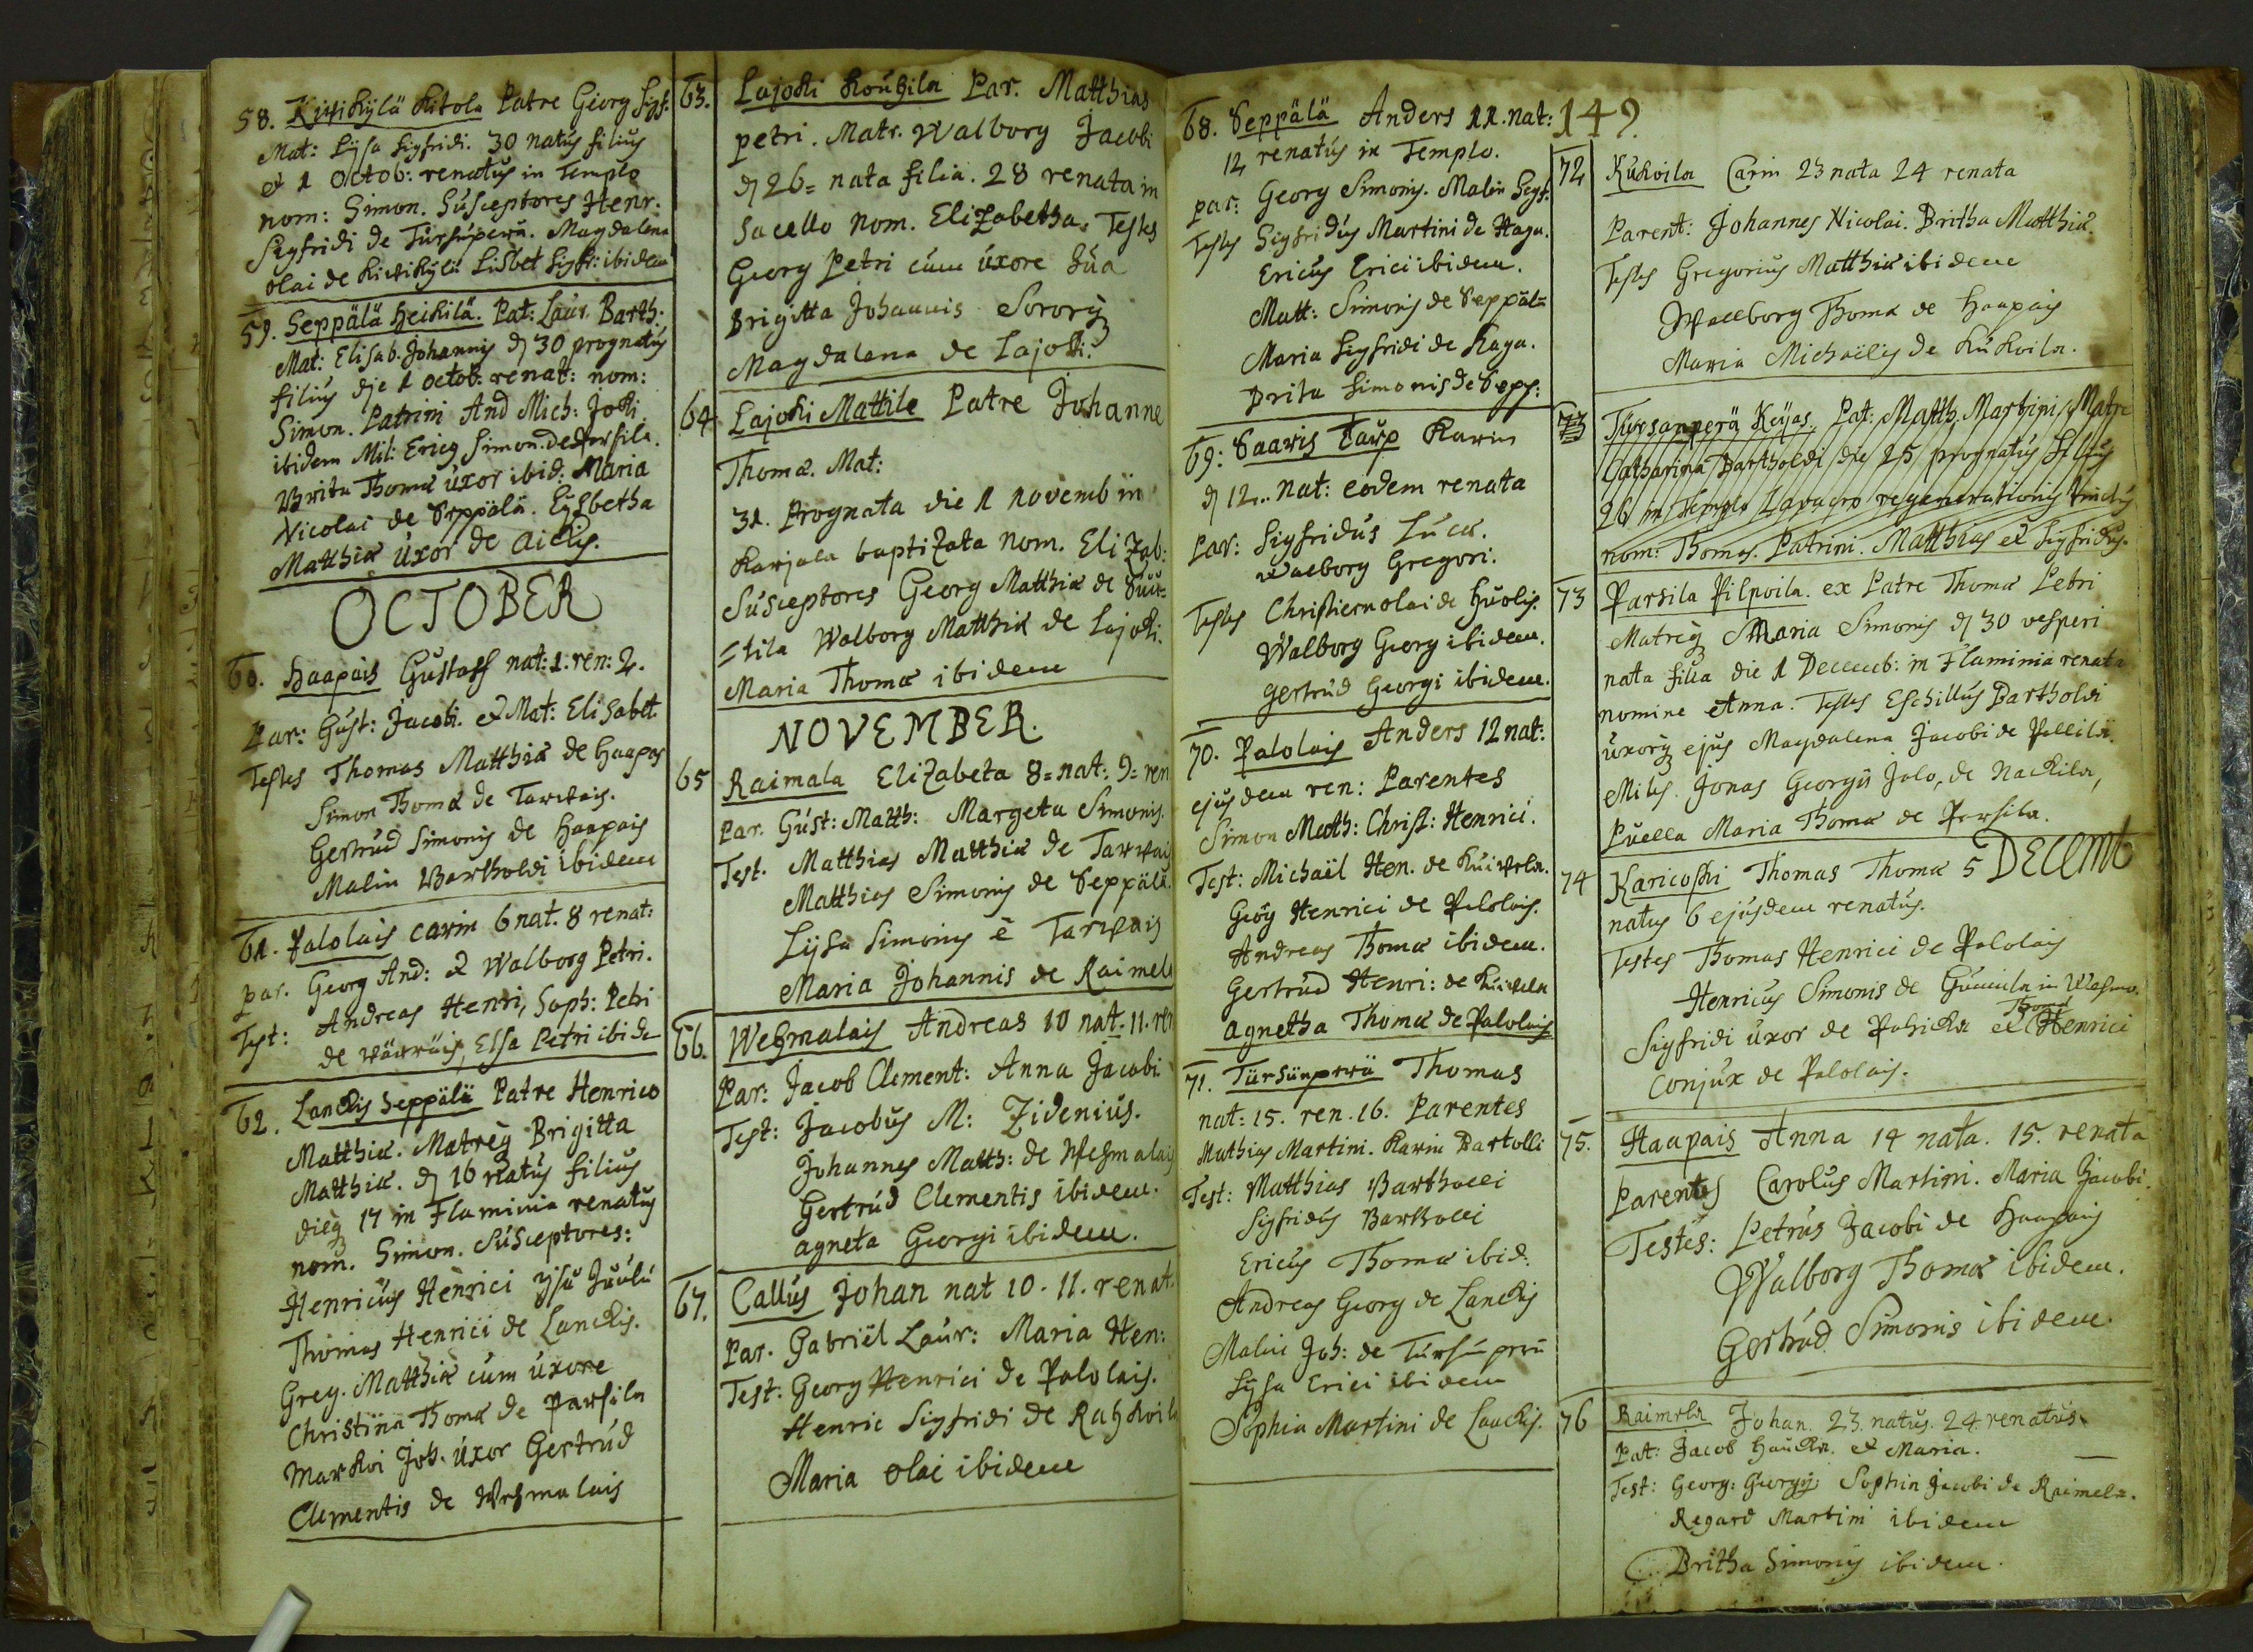 58. Kivikylä Kitola Patre Georg Sigf:
Mat: Lysa Sigfridi. 30 natus filius
et 1 Octob: renatus in Templo
nom: Simon. Susceptores Henr:
Sigfridi de Tursuperä. Magdalena
olai de Kivikylä Lisbet Sigfr: ibidem
59. Seppälä Heikilä. Pat: Laur. Barth:
Mat: Elisab. Johannis d 30 prognatus
filius die 1 octob. renat: nom:
Simon. Patrini And Mich: Joki
ibidem Mil: Ericq Simon. de Parsila.
Brita Thomæ uxor ibid: Maria
Nicolai de Seppälä. Elzbetha
Matthiæ uxor de
OCTOBER
60. Haapais Gustaff nat: 1. ren: 2.
Par: Gust: Jacobi. et Mat: Elisabet.
Testes Thomas Matthiæ de Haapas
Simon Thomæ de Tarvais.
Gertrud Simonis de Haapais
Malin Bartholdi ibidem
61. Palolais Carin 6 nat. 8 renat:
par. Georg And: et Walborg Petri.
Test: Andreas Henri, Soph: Petri
de Wärräis, Elsa Petri ibide
62. Lanckis Seppälä Patre Henrico
Matthiæ. Matreq Brigitta
Matthiæ. d 16 natus filius
dieq 17 in Flaminia renatus
nom. Simon. Susceptores:
Henricus Henrici
Thomas Henrici de Lanckis.
Greg. Matthiæ cum uxore
Christina Thomæ de Parsila
Markoi Joh. uxor Gertrud
Clementis de Wehmalais
63. Lajoki Kouhila Par. Matthias
petri. Matr. Walborg Jacobi
d 26 = nata filia. 28 renata in
Sacello nom. Elizabetha. Testes
Georg Petri cum uxore sua
Brigitta Johannis Sororq
Magdalena de Lajoki.
64 Lajoki Mattila Patre Johanne
Thomæ. Mat:
31. Prognata die 1 novemb in
Karjala baptizata nom. Elizab:
Susceptores Georg Matthiæ de Suut=
=tila Walborg Matthiæ de Lajoki.
Maria Thomæ ibidem
NOVEMBER.
65 Raimala Elizabeta 8= nat: 9= ren
Par. Gust: Matth: Margeta Simonis.
Test. Matthias Matthiæ de Tarvais
Matthias Simonis de Seppälä.
Lijsa Simonis è Tarvais
Maria Johannis de Raimela
66. Wehmalais Andreas 10 nat. 11. ren
Par: Jacob Clement: Anna Jacobi.
Test: Jacobus M: Zidenius.
Johannes Matth: de Wehmalais
Gertrud Clementis ibidem.
agneta Georgi ibidem.
67. Callus Johan nat 10. 11. renat.
Par. Gabriel Laur: Maria Hen:
Test: Georg Henrici de Palolais.
Henric Sigfridi de Rahkoila
Maria olai ibidem
149
68. Seppälä Anders 11. nat:
12 renatus in Templo.
par: Georg Simonis. Malin Sigf:
Testes Sigfridus Martini de Haga.
Ericus Erici ibidem.
Matt: Simonis de Seppäl=
Maria Sigfridi de Haga.
Brita Simonis de Sepp:
69: Saaris Taup Karin
d 12.. Nat: eodem renata
Par: Sigfridus Lucæ.
Walborg Gregori.
Testes Christiern olai de Huolis.
Walborg Georg ibidem.
gertrud Georgi ibidem.
70. Palolais Anders 12 nat:
ejusdem ren: Parentes
Simon Matth: Christ: Henrici.
Test: Michaël Hen. de Kuivela.
Georg Henrici de Palolais.
Andreas Thomæ ibidem.
Gertrud Henri: de Kuivela
agnetha Thomæ de Palolais
71. Tursunperä Thomas
nat: 15. ren. 16. Parentes
Mathias Martini. Karin Bartolli
Test: Matthias Bartholli
Sigfridus Bartholli
Ericus Thomæ ibid:
Andreas Georg de Lanckis
Malin Joh: de Tursunperä
Lijsa Erici ibidem
Sophia Martini de Lanckis.
72 Kukoila Carin 23 nata 24 renata
Parent: Johannes Nicolai. Britha Matthiæ.
Testes Gregorius Matthiæ ibidem
Wallborg Thomæ de Haapais
Maria Michaëlis de Kukoila.
73 Tursanperä Keijas. Pat: Matth. Martini, Matre
Catharina Bartholdi die 25 prognatus filius
26 in Templo Lavacro regenerationis tinctus
nom: Thomas. Patrini. Matthias et Sigfridus.
73 Parsila Pilpoila. ex Patre Thoma Petri
Matreq Maria Simonis d 30 vesperi
nata filia die 1 Decemb: in Flaminia renata
nomine Anna. Testes Eschillus Bartholdi
uxorq ejus Magdalena Jacobi de Pellilä.
Miles. Jonas Georgii Jolo, de Nackila,
Puella Maria Thomæ de Parsila.
DECEMB
74 Karicoski Thomas Thomæ 5
natus 6 ejusdem renatus.
Testes Thomas Henrici de Palolais
Henricus Simonis de in Wehma.
Sigfridi uxor de et Henrici
conjux de Palolais.
75. Haapais Anna 14 nata. 15. renata
Parentes Carolus Martini. Maria Jacobi.
Testes: Petrus Jacobi de Haapais
Walborg Thomæ ibidem.
Gertrud Simonis ibidem.
76 Raimela Johan. 23 natus. 24 renatus
Pat: Jacob Haucka. et Maria.
Test: Georg: Georgij: Sophia Jacobi de Raimela.
Regard Martini ibidem
Britha Simonis ibidem.